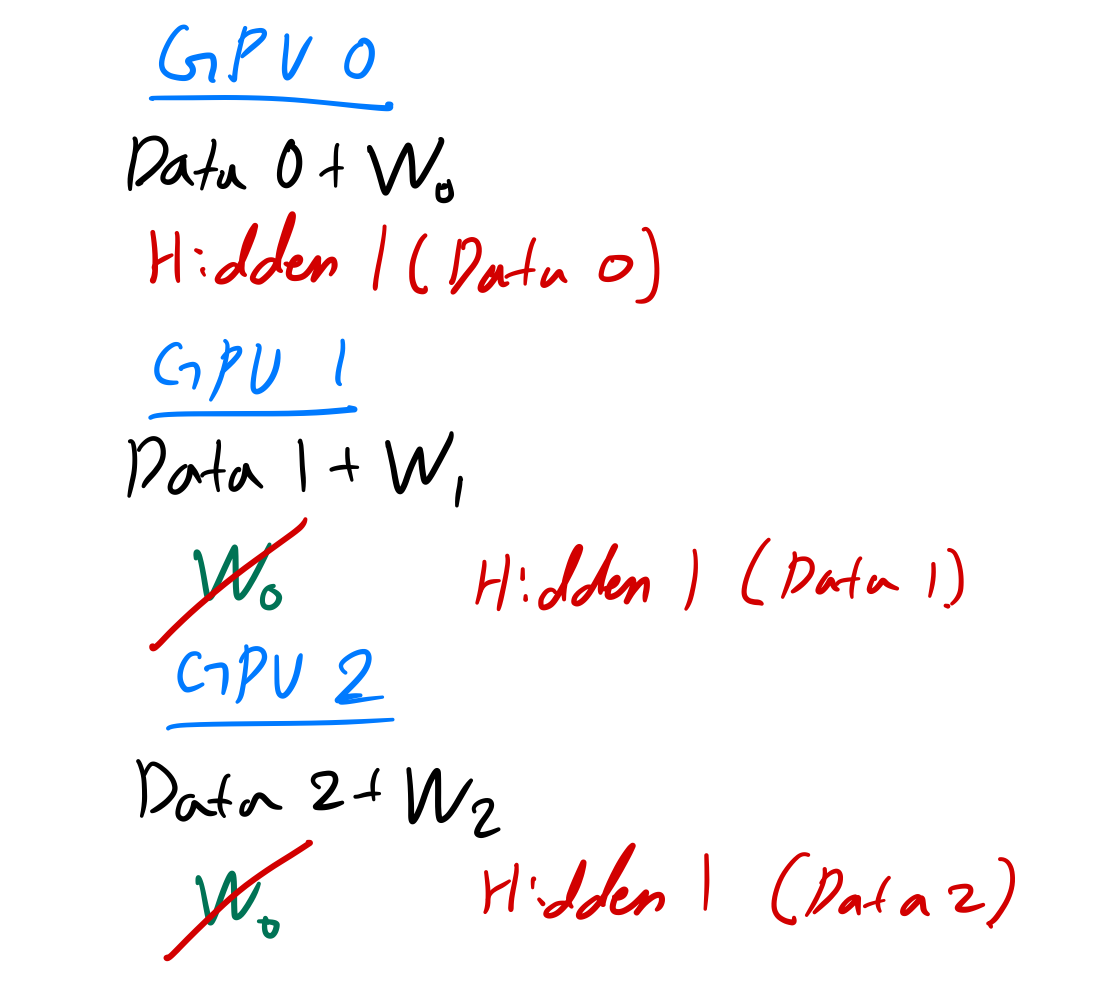 GPU 0
Data 0 + W₀
Hidden 1 (Data 0)
GPU 1
Data 1 + W₁
W₀ Hidden 1 (Data 1)
GPU 2
Data 2 + W₂
W₀ Hidden 1 (Data 2)